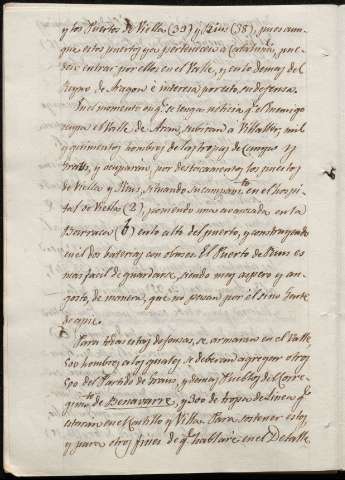 y los Puertos de Viella (39) y Rius (38), pues aun
que estos puertos ya pertenecen à Cataluña, pue
den entrar por ellos en el Valle, y en lo demas del
Reyno de Aragon è interesa por esto, su defensa.
En el momento en qᵉ. se tenga noticia qᵉ. el Enemigo
ocupa el Valle de Aran, subiran à Villaller, mil
y quinientos hombres de las tropas de Campo y
Graus, y ocuparan por destacamentos los puertos
de Viella y Rius, situando su campamᵗᵒ. en el hospi
tal de Viella (2), poniendo una avanzada en la
Barraca (6) en lo alto del puerto, y construyendo
en él dos baterias con obuses. El Puerto de Rius es
mas facil de guardarse, siendo muy aspero y an
gosto, de manera, que no pasan por él sino gente
de apie.
Para todas estas defensas, se armaran en el Valle
500 hombres, a los quales se deberan agregar otros
500 del Partido de Graus, y demas Pueblos del Corre
gimᵗᵒ. de Benavarre, y 300 de tropa de linea qᵉ.
estaran en el Castillo y Villa. Para sostener estos,
y para otros fines de qᵉ. hablarè en el Detalle